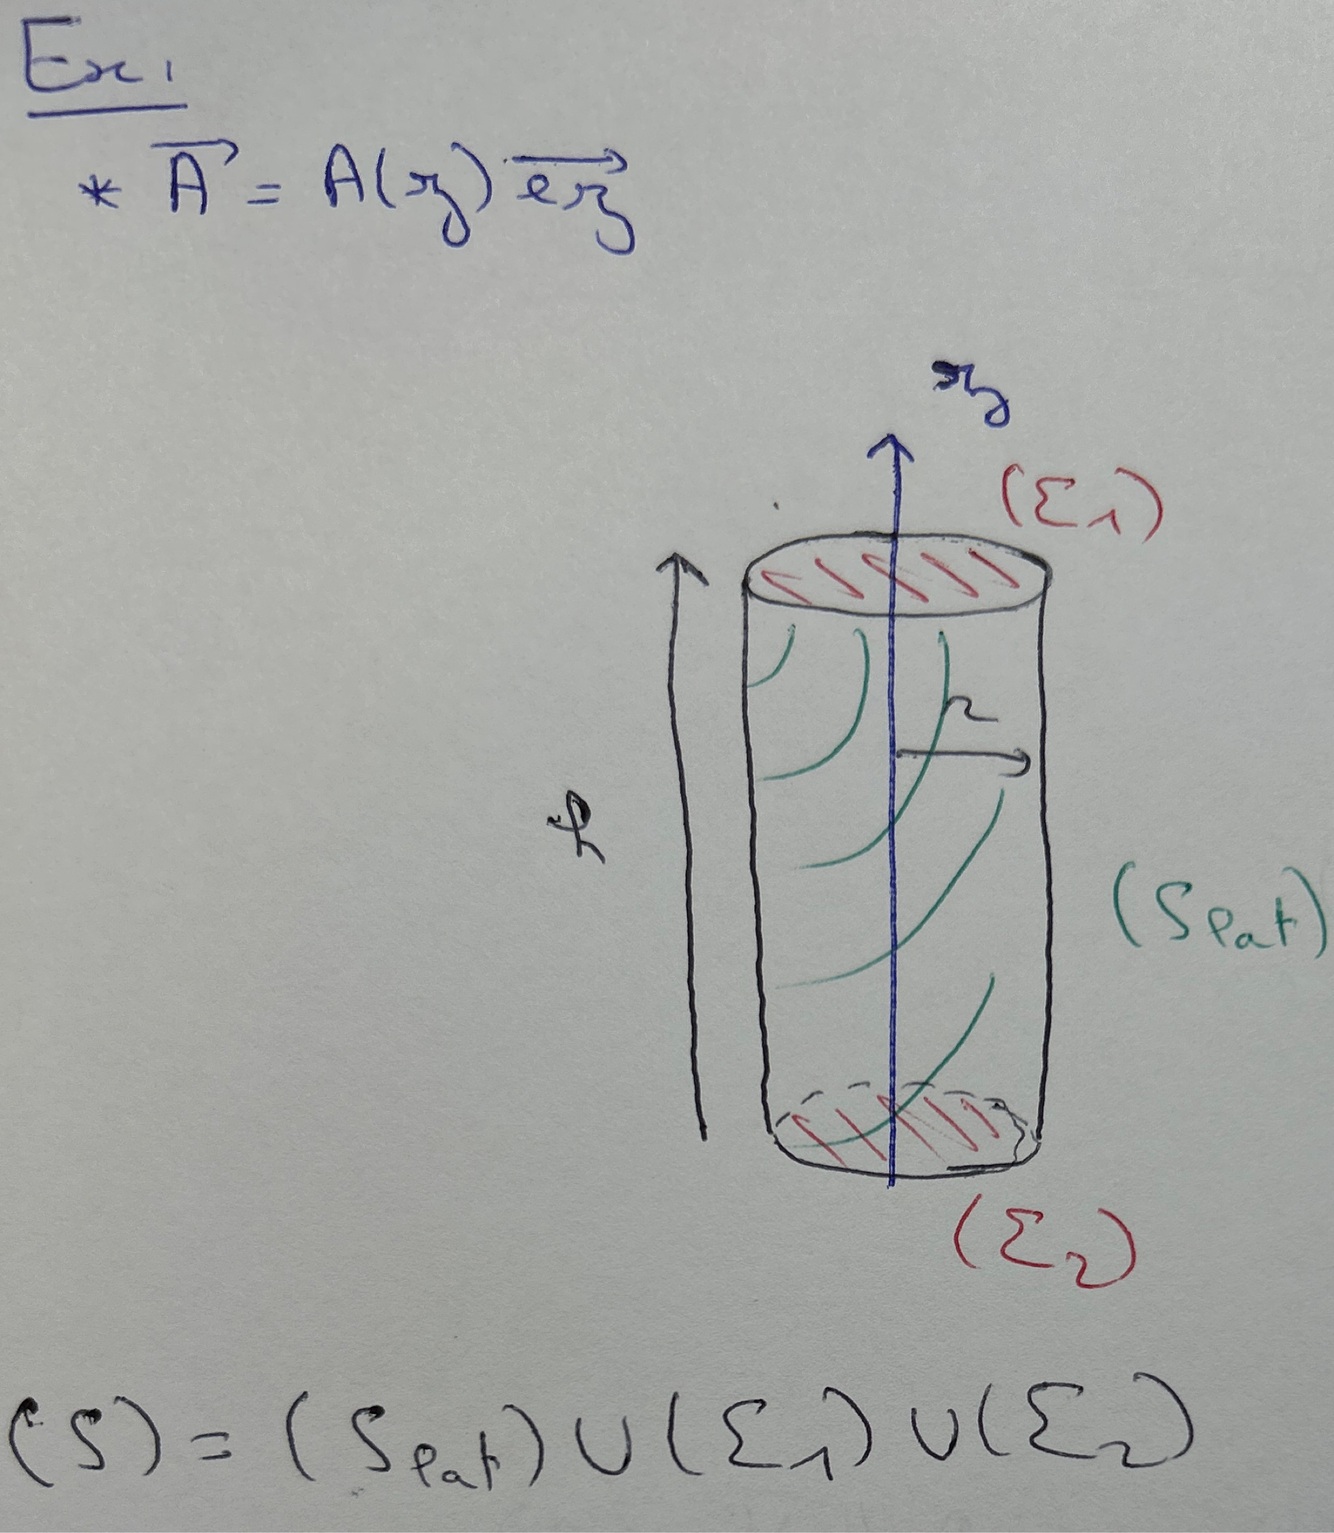 Ex:
* A⃗ = A(z) e⃗z
z
(Σ1)
r
h
(Slat)
(Σ2)
(S) = (Slat) ∪ (Σ1) ∪ (Σ2)